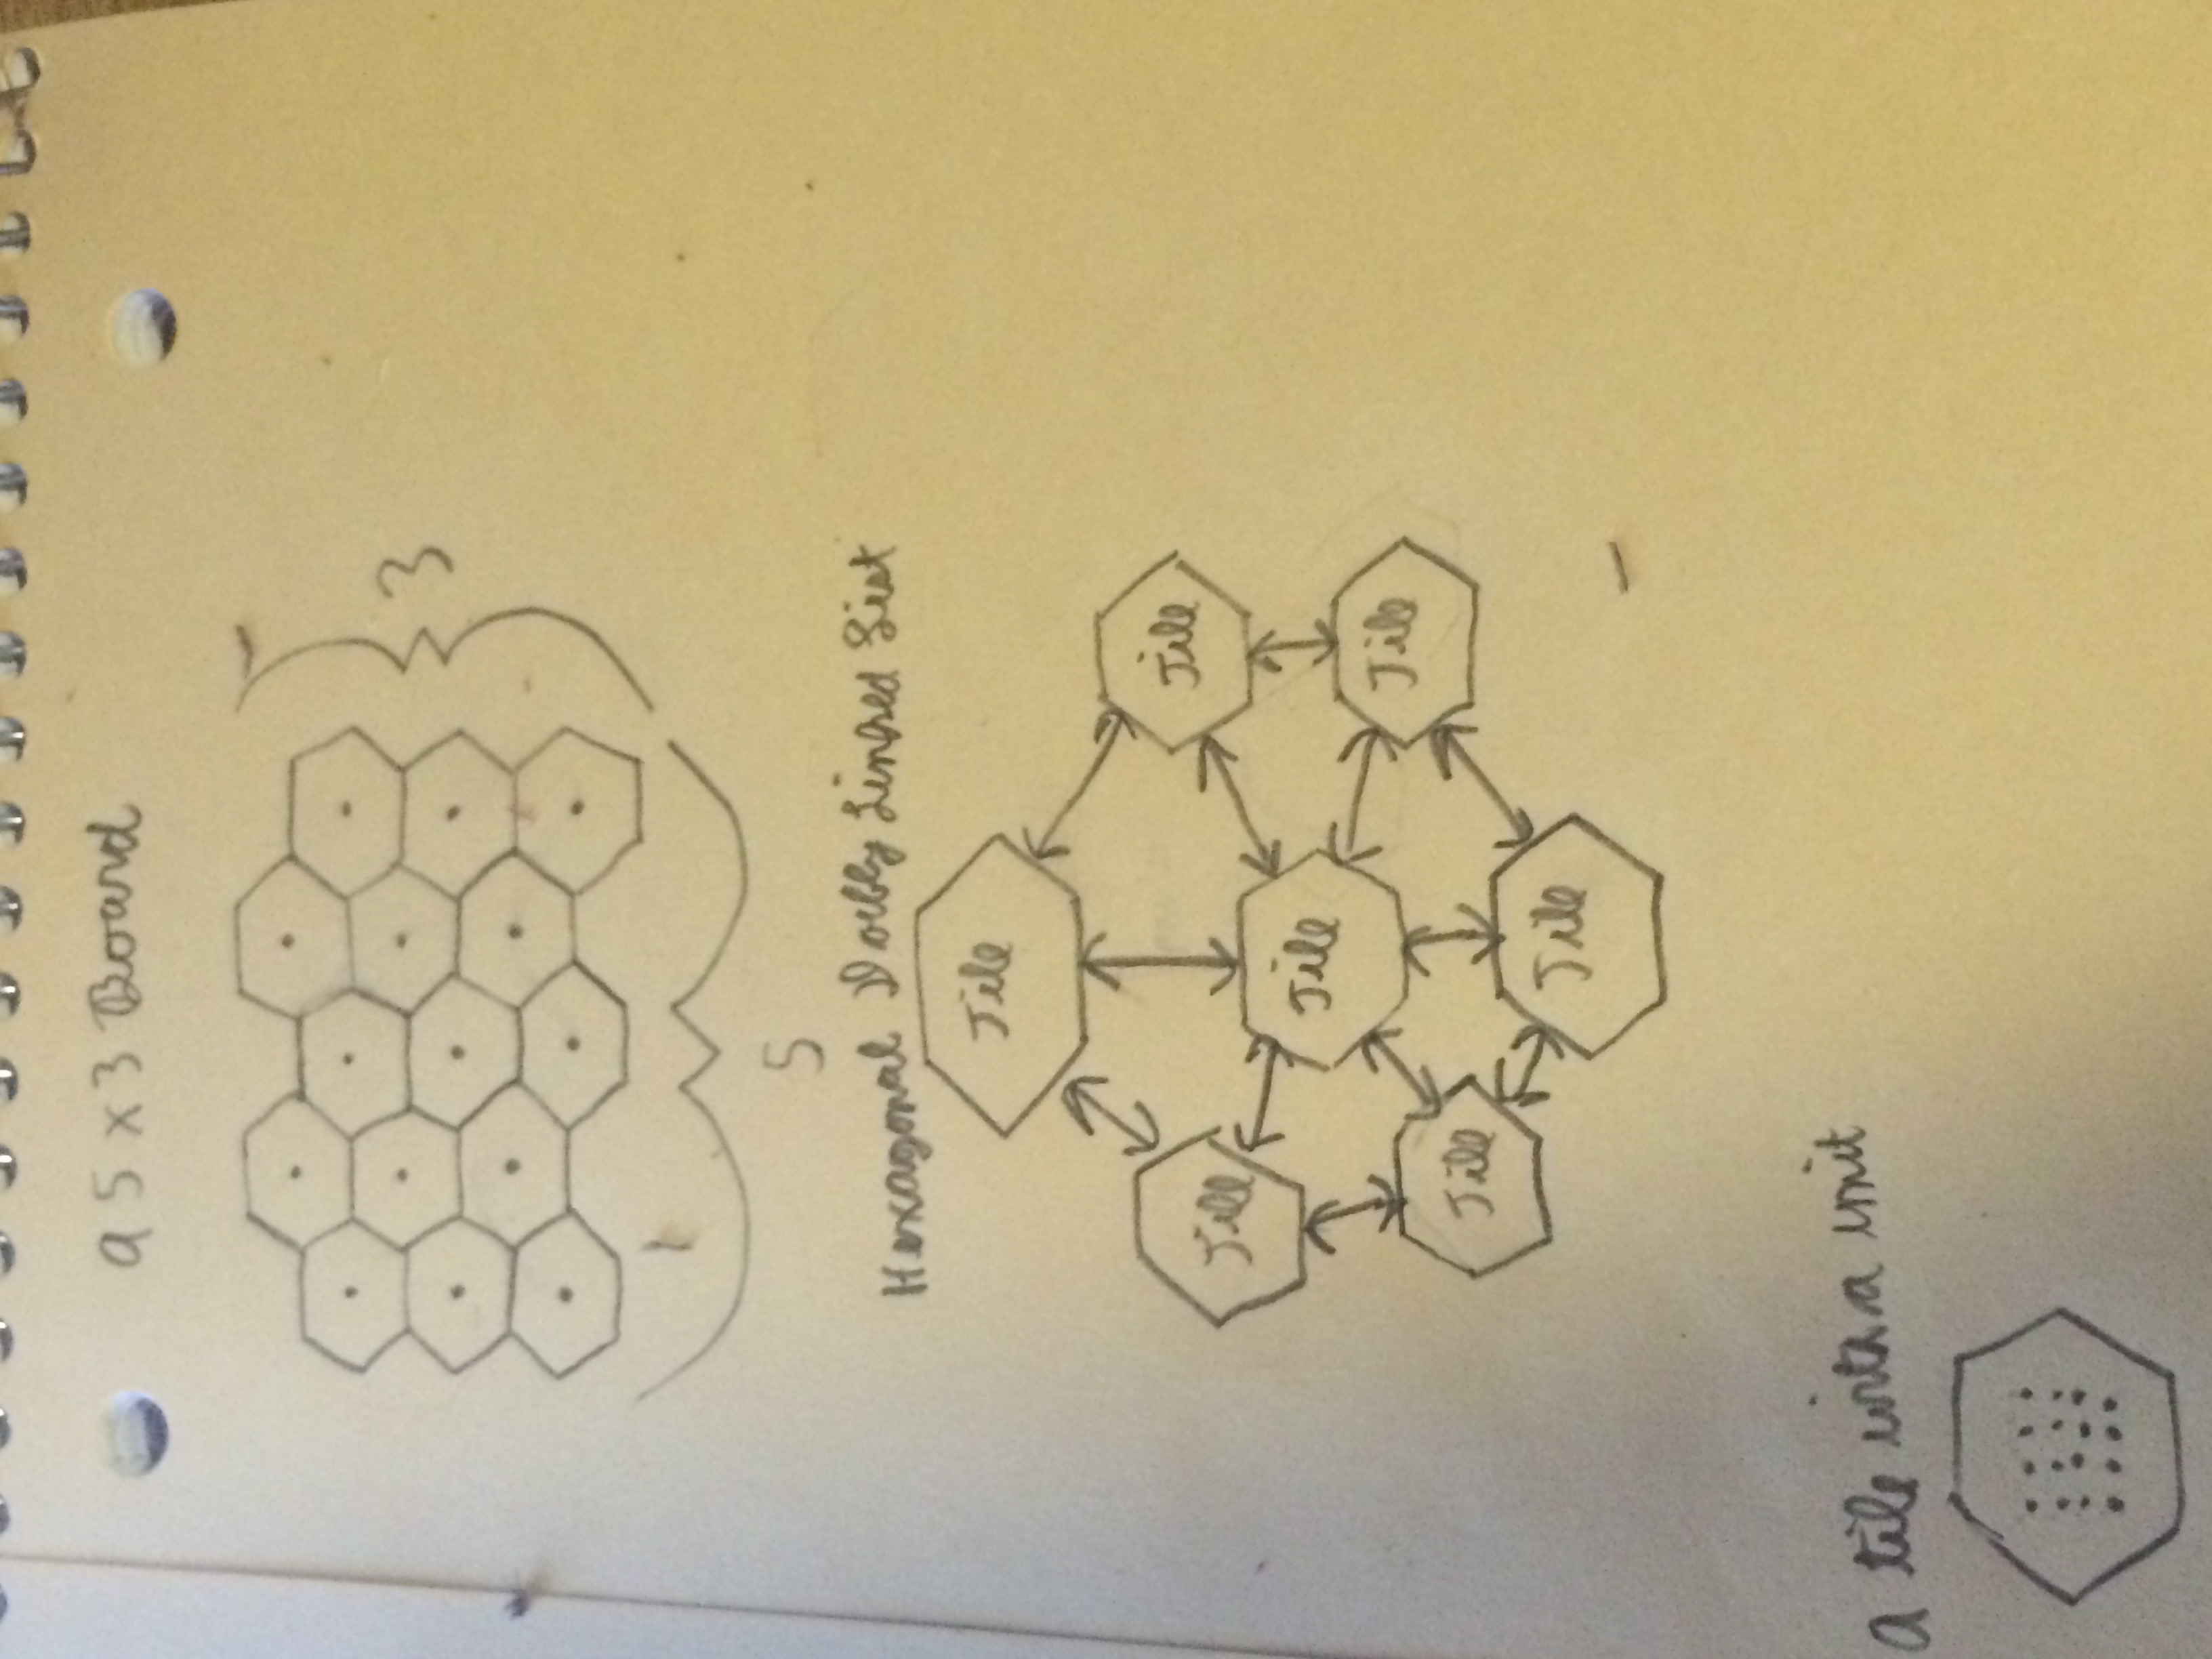 a 5 x 3 Board
3
5
Hexagonal Doubly Linked List
Tile
Tile
Tile
Tile
Tile
Tile
Tile
A tile with a unit